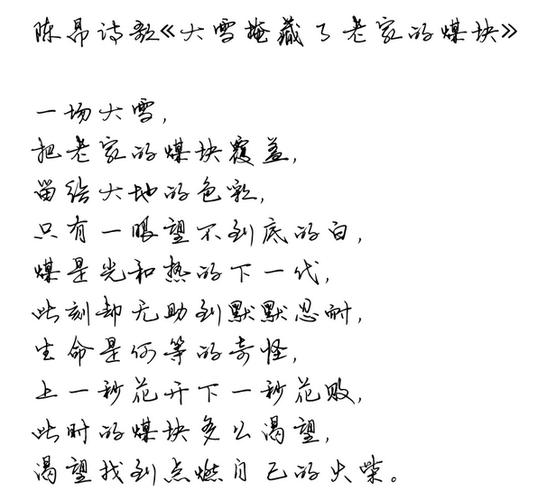 陈昂诗歌《大雪掩藏了老家的煤块》
一场大雪，
把老家的煤块覆盖，
留给大地的色彩，
只有一眼望不到底的白，
煤是光和热的下一代，
此刻却无助到默默忍耐，
生命是何等的奇怪，
上一秒花开下一秒花败，
此时的煤块多么渴望，
渴望找到点燃自己的火柴。